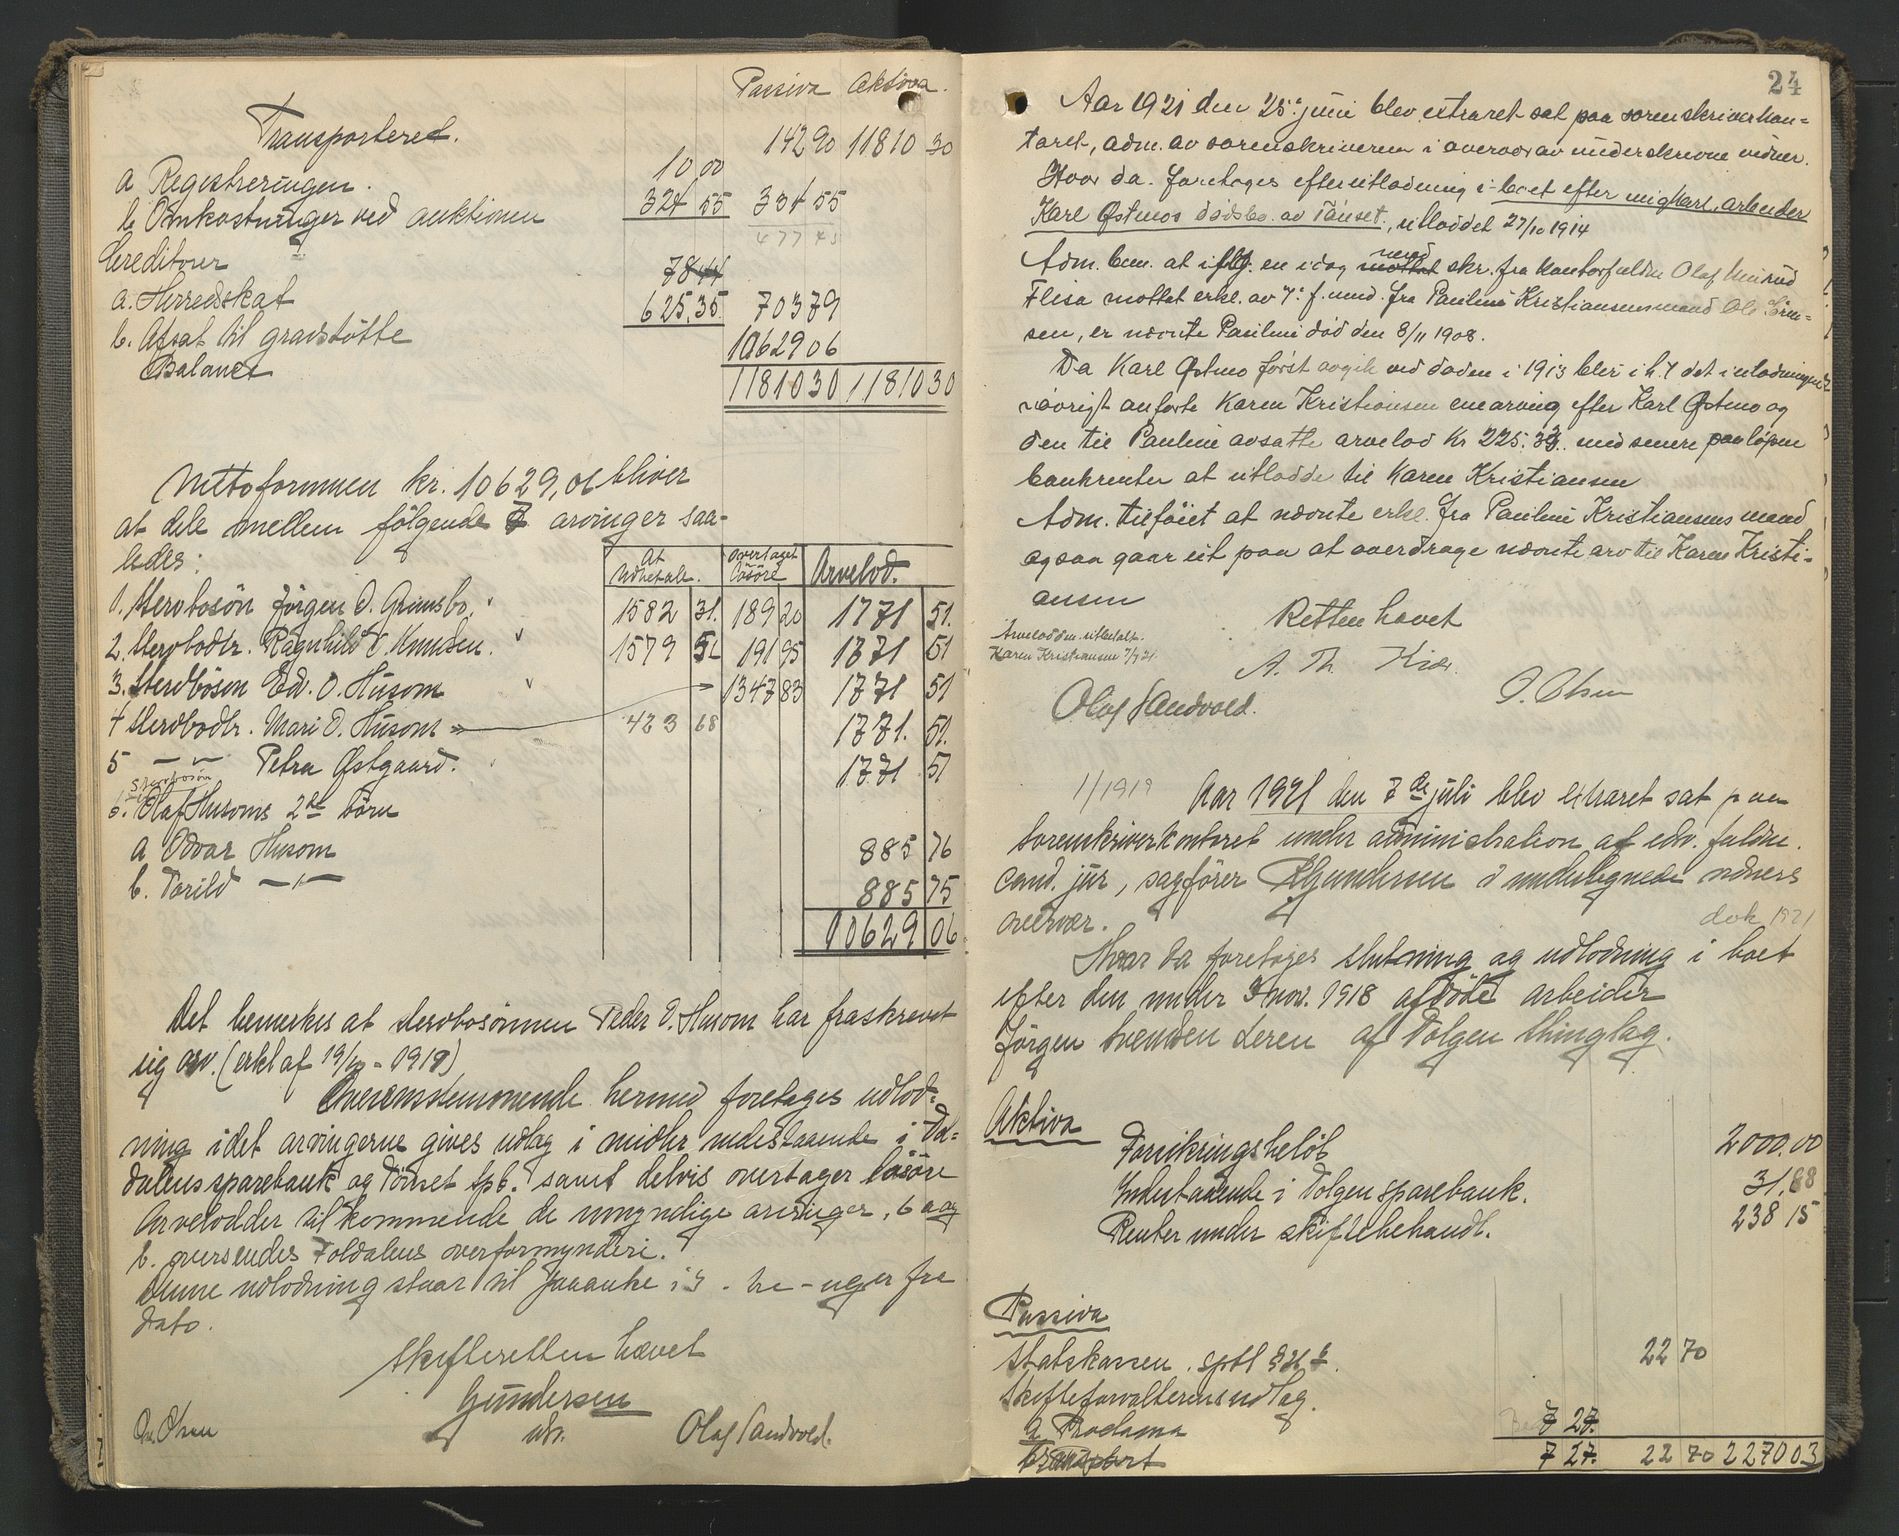 Passiva Aktiva.
Transporteret. 142 90 11810 30
a Registreringen. 10 00
b Omkostninger ved auktionen 324 55 334 55
477 45
Creditorer
a. Herredskat 78 44
b. Afsat til gravstötte 625,35 703 79
10629 06
Balance 11810 30 11810 30
Nettoformuen kr. 10629,06 bliver
at dele mellem følgende arvinger saa-
ledes:
At udbetale. Overtaget lösöre Arvelod.
1. Stervbosön Jörgen O. Grimsbo. 1582 31. 189 20 1771 51.
2. Stervbodtr. Ragnhild O. Knudsen. 1579 56 191 95 1771 51
3. Stervbösön Ed. O. Husom 1347 83 1771 51
4 Stervbodtr. Mari O. Husom 423 68 1771. 51.
5 — " — Petra Østgaard. 1771 51
Stervbosön
6. Olaf Husoms 2de börn
a Odvar Husom 885 76
b. Torild — " — 885 75
10629 06
Det bemerkes at stervbosönnen Peder O. Husom har fraskrevet
sig arv. (erkl af 19/12 - 1918)
Overensstemmende hermed foretages udlod-
ning idet arvingerne gives udlag i midler indestaaende i Fol-
dalens sparebank og Tönset Spb. samt delvis overtager lösöre
Arvelodder tilkommende de umyndige arvinger, 6 a og
b. oversendes Foldalens overformynderi.
Denne udlodning staar til paaanke i 3 - tre - uger fra
dato.
Skifteretten hævet
Gundersen
Ole Olsen Olaf Sandvold.
24
Aar 1921 den 25. juni blev extraret sat paa sorenskriverkon-
toret, adm. av sorenskriveren i overvær av underskrevne vidner.
Hvor da foretoges efterutlodning i boet efter ungkarl, arbeider
Karl Østmos dødsbo av Tönset., utloddet 27/10 1914
Adm. bem. at ifølg. en idag modt skr. fra kontorfuldm Olaf
Flisa mottat erkl. av 7. f. mnd. fra Pauline Kristiansens mand Ole
sen, er nævnte Pauline död den 8/11 1908.
Da Karl Østmo først avgik ved døden i 1913 blir i h. t det i utlodningen
iøvrigt anførte Karen Kristiansen enearving efter Karl Østmo og
den til Pauline avsatte arvelod Kr 225.33. med senere paaløpne
bankrenter at utlodde til Karen Kristiansen
Adm. tilføiet at nævnte erkl. fra Pauline Kristiansens mand
ogsaa gaar ut paa at overdrage nævnte arv til Karen Kristi-
ansen
Retten hævet
Arvelodden utbetalt.
Karen Kristiansen 7/7 21.
A. Th. Kiær
O. Olsen
Olaf Sandvold.
1/1919 Aar 1921 den 7de juli blev extraret sat paa
sorenskriverkontoret under administration af edv. fuldm.
cand. jur, sagfører Gundersen i undertegnede vidners
overvær. dok 1921
Hvor da foretoges slutning og udlodning i boet
efter den under 3 nov. 1918 afdöde arbeider
Jörgen Svendsen Leren af Tolgen thinglag.
Aktiva
Forsikringsbelöb 2000.00
Indestaaende i Tolgen sparebank. 31,88
Renter under skiftebehandl. 238 15
Passiva
Statskassen. sptl 22 70
Skifteforvalterens udlag.
a Proclama 7 27.
Transport 7 27. 22 70 2270 03